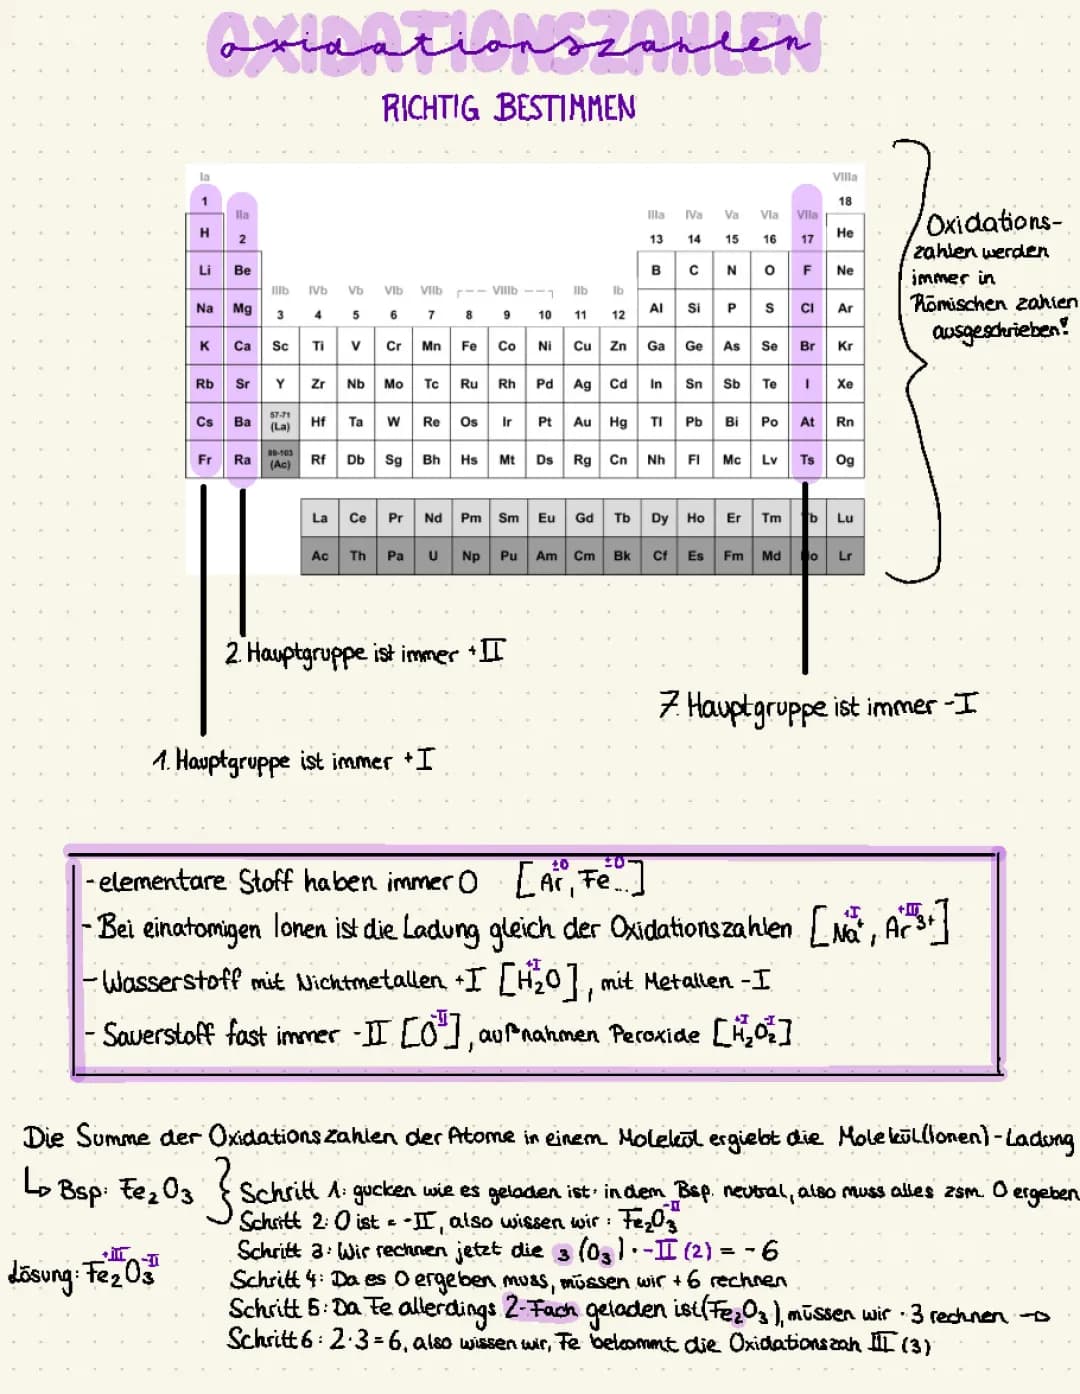 OXIDATIONSZAHLEN
oxidationszahlen
RICHTIG BESTIMMEN
Ia VIIIa
1 IIa IIIa IVa Va VIa VIIa 18
H 2 13 14 15 16 17 He
Li Be B C N O F Ne
IIIb IVb Vb VIb VIIb VIIIb IIb Ib
Na Mg 3 4 5 6 7 8 9 10 11 12 Al Si P S Cl Ar
K Ca Sc Ti V Cr Mn Fe Co Ni Cu Zn Ga Ge As Se Br Kr
Rb Sr Y Zr Nb Mo Tc Ru Rh Pd Ag Cd In Sn Sb Te I Xe
Cs Ba 57-71 (La) Hf Ta W Re Os Ir Pt Au Hg Tl Pb Bi Po At Rn
Fr Ra 89-103 (Ac) Rf Db Sg Bh Hs Mt Ds Rg Cn Nh Fl Mc Lv Ts Og
La Ce Pr Nd Pm Sm Eu Gd Tb Dy Ho Er Tm Yb Lu
Ac Th Pa U Np Pu Am Cm Bk Cf Es Fm Md No Lr
Oxidations-
zahlen werden
immer in
Römischen zahlen
ausgeschrieben!
2. Hauptgruppe ist immer +II
7. Hauptgruppe ist immer -I
1. Hauptgruppe ist immer +I
±0 ±0
- elementare Stoff haben immer 0 [Ar, Fe...]
+I +III
- Bei einatomigen Ionen ist die Ladung gleich der Oxidationszahlen [Na⁺, Ar³⁺]
+I
- Wasserstoff mit Nichtmetallen +I [H₂O], mit Metallen -I
-II +I -I
- Sauerstoff fast immer -II [O], außnahmen Peroxide [H₂O₂]
Die Summe der Oxidationszahlen der Atome in einem Molekül ergiebt die Molekül(Ionen)-Ladung
↳ Bsp: Fe₂O₃ { Schritt 1: gucken wie es geladen ist, in dem Bsp. neutral, also muss alles zsm. 0 ergeben
-II
Schritt 2: O ist = -II, also wissen wir: Fe₂O₃
Schritt 3: Wir rechnen jetzt die 3 (O₃) · -II (2) = -6
+III -II
Lösung: Fe₂O₃
Schritt 4: Da es 0 ergeben muss, müssen wir +6 rechnen
Schritt 5: Da Fe allerdings 2-Fach geladen ist (Fe₂O₃), müssen wir · 3 rechnen →
Schritt 6: 2·3=6, also wissen wir, Fe bekommt die Oxidationszah III (3)